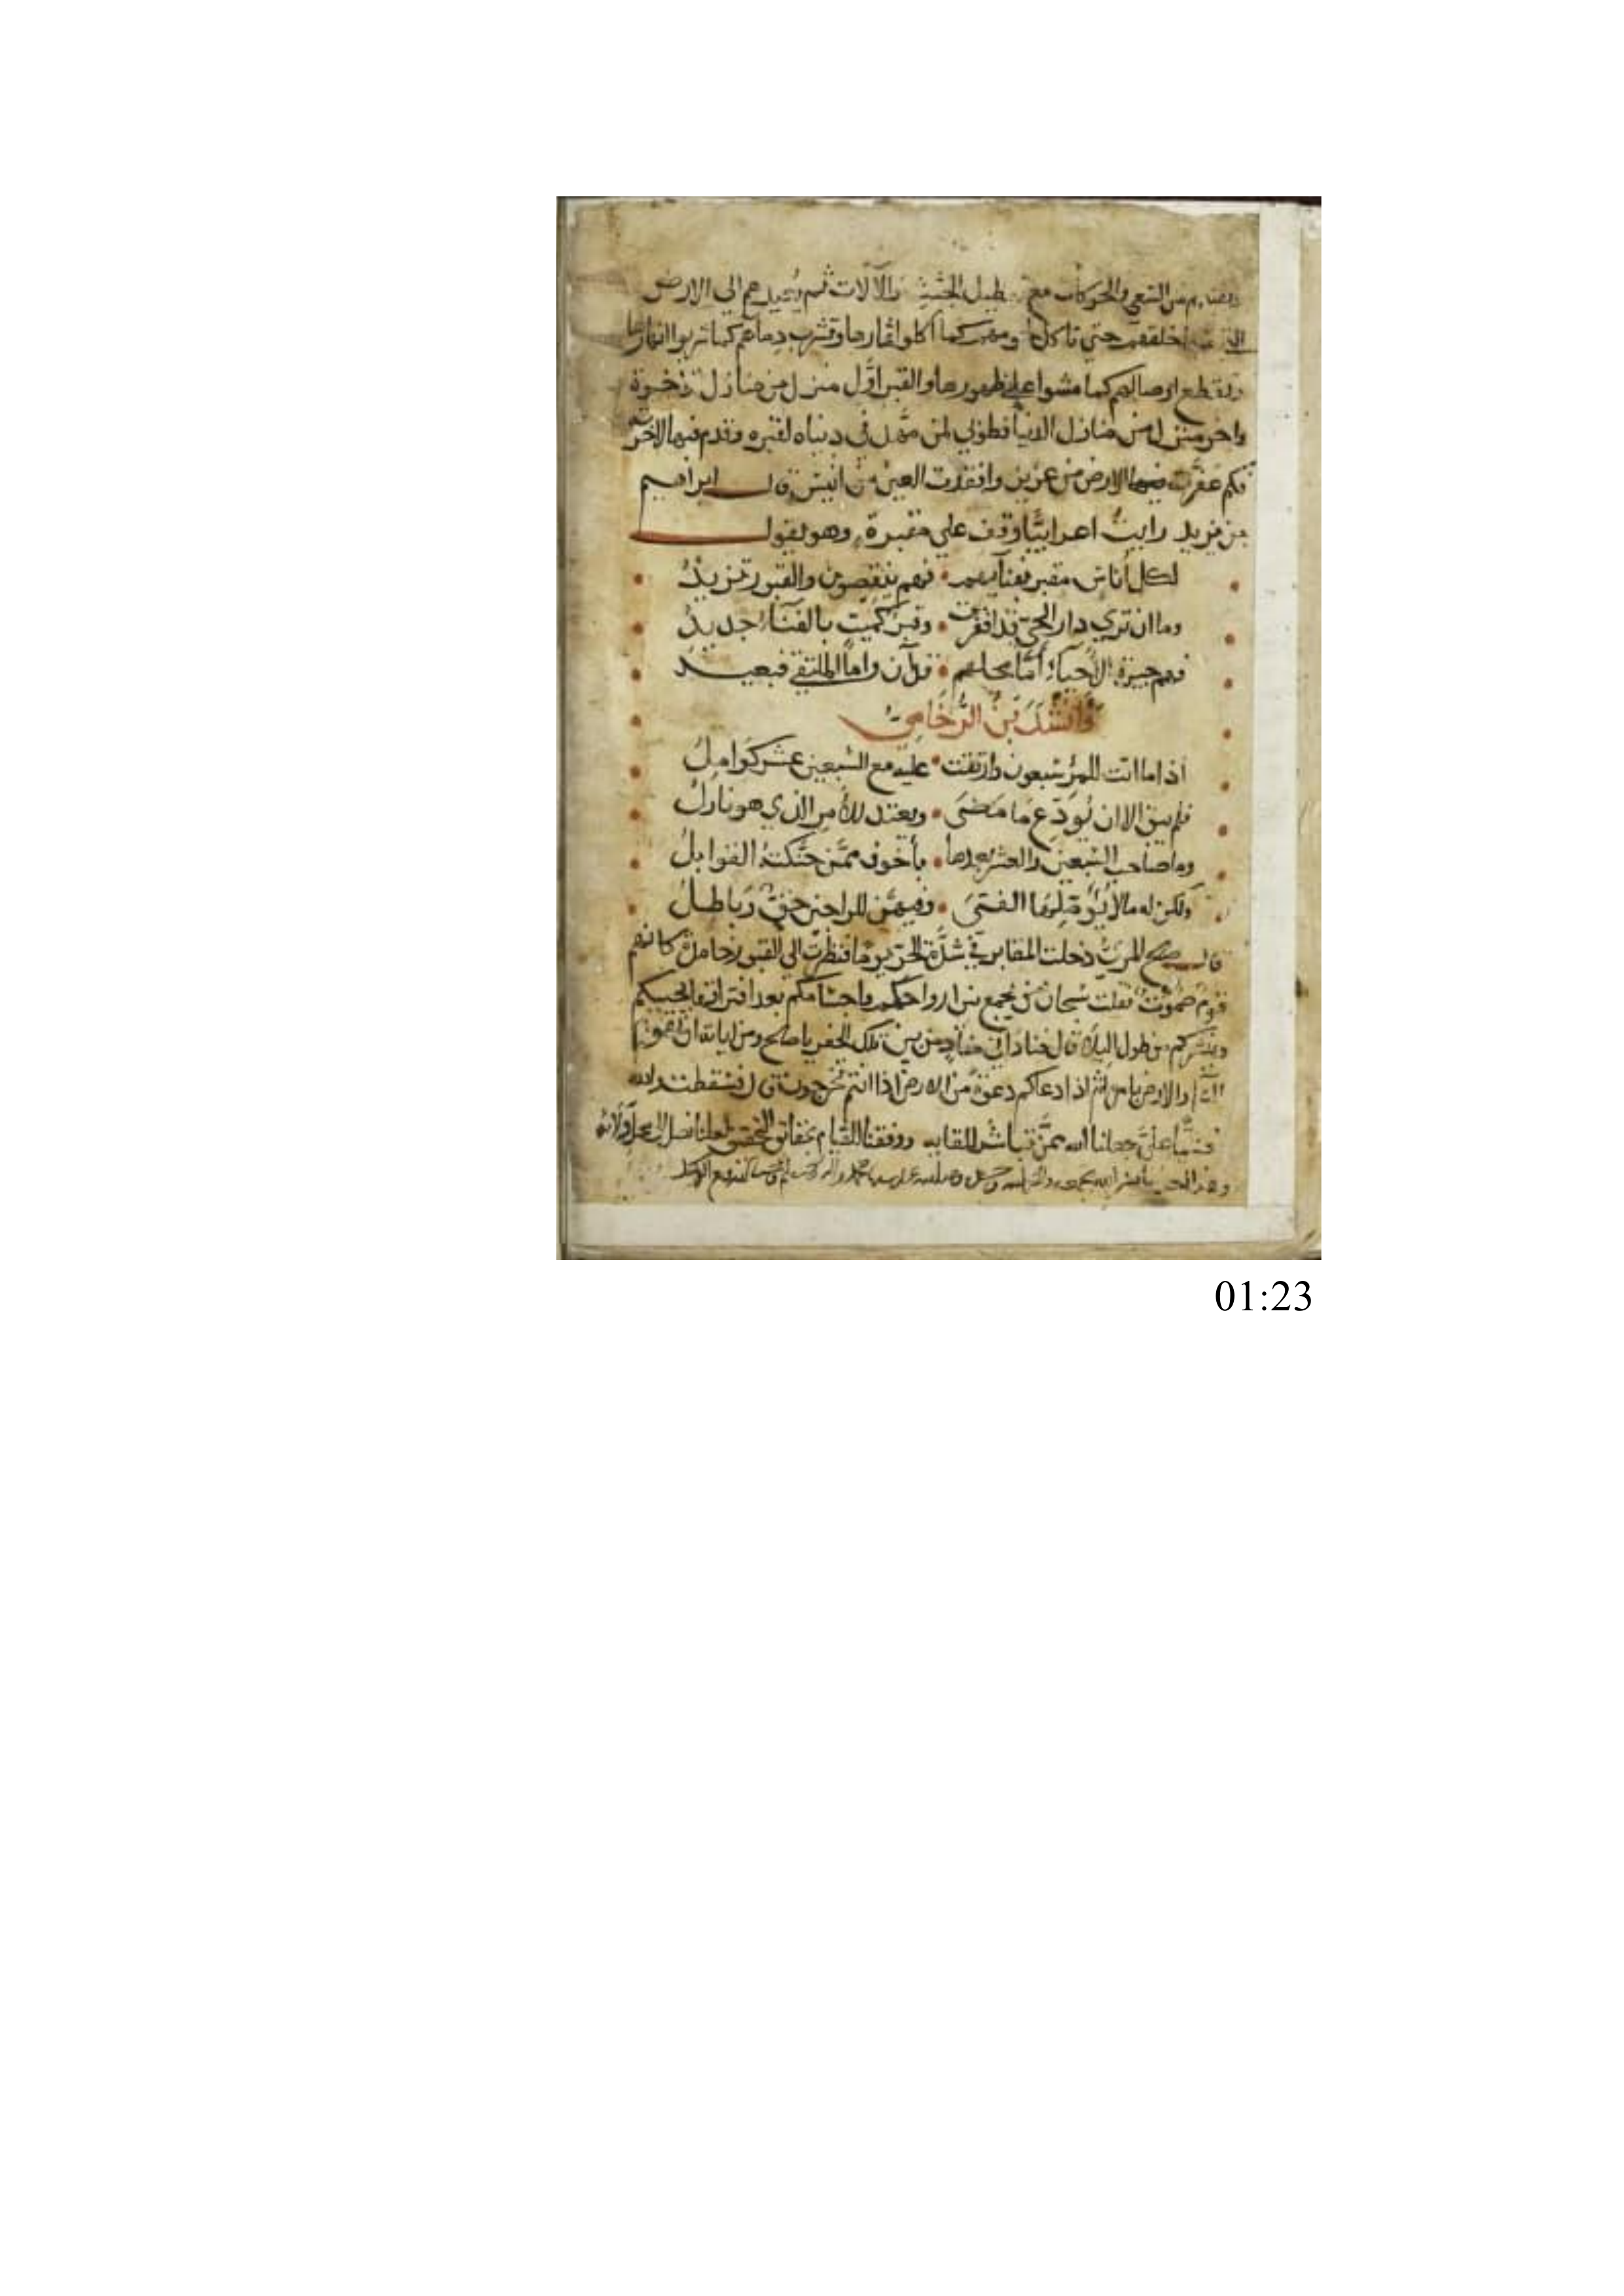 من السعي والحركات مع الجثث والآلات ثم يعيدهم الي الارض
خلقهم حتي تاكل كما اكلوا اثمارها وتشرب دماءهم كما شربوا انهارها
وتقطع اوصالهم كما مشوا علي ظهورها والقبر اوّل منزل من منازل
واخر منزل من منازل الدنيا فطوبي لمن مهّل في دنياه لقبره وقدم منها لاخرته
فكم عفّرت الارض من عزيز وافقدت العين من انيس قال ابراهيم
بن يزيد رايت اعرابيًّا وقف علي مقبرة وهو يقول
لكل أناس مقبر بفنآيهم • فهم ينقصون والقبور تزيدُ
وما ان تري دار الحيّ قد اقفرت • وقبرٌ لميّت بالفنآءِ جديدُ
فهم جيرة الاحيآءِ أمّا محلهم • فدآن واما الملتقي فبعيد
وأنشَدَ بن الرُّخَّامِيّ
اذا ما اتت للمرْءِ سبعون وارتقت • عليه مع السّبعين عشر كوَاملُ
فلم يبق الا ان يُوَدّع مَا مَضَي • ويعتد للأمر الذي هو نازلُ
وما صاحب السّبعين والعشر بعدها • بأخوف ممَّن حنَّكتهُ القوابلُ
ولكن له مالا يُؤمّلهَا الفتَى • وفيهنّ للراجين حقٌّ وَباطلُ
قال صلح المريّ دخلت المقابر في شدّة الحرّ يومًا فنظرت الي القبور خامدة كانهم
قومٌ صموتٌ فقلت سبحان من يجمع بين ارواحكم واجسَامكم بعد افتراقها ثم يحييكم
وينشركم من طول البلآء قال فناداني منادٍ من بين تلك الحفر يا صلح ومن اياته ان تقوم
السمآء والارض بامره ثم اذا دعاكم دعوةً من الارض اذا انتم تخرجون قال فسقطت والله
مغشيًّا عليَّ جعلنا الله ممَّن تباشر للقايه ووفقنا للقيام بحقايق التحقيق لعلنا نصل الي محل اوليائه